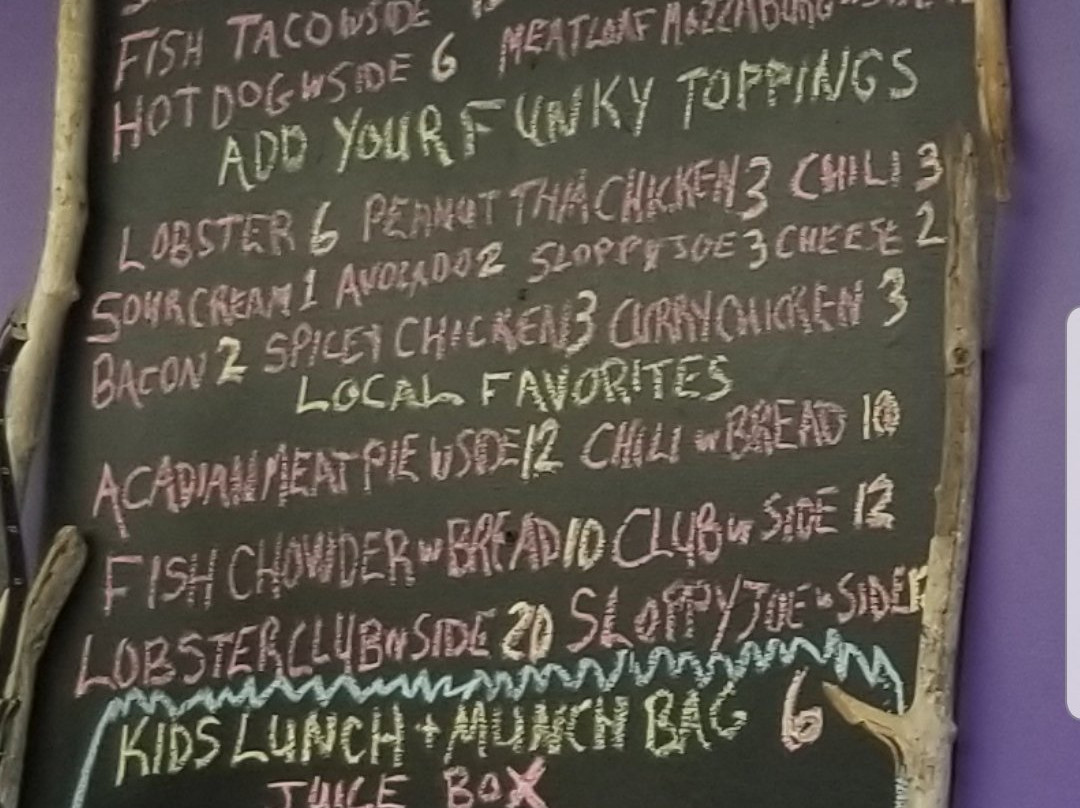 FISH TACO WSIDE
HOT DOG WSIDE 6 MEATLOAF MOZZABURG
ADD YOUR FUNKY TOPPINGS
LOBSTER 6 PEANUT THAI CHICKEN 3 CHILI 3
SOUR CREAM 1 AVOCADO 2 SLOPPY JOE 3 CHEESE 2
BACON 2 SPICEY CHICKEN 3 CURRY CHICKEN 3
LOCAL FAVORITES
ACADIAN MEAT PIE WSIDE 12 CHILI w BREAD 10
FISH CHOWDER w BREAD 10 CLUB w SIDE 12
LOBSTER CLUB w SIDE 20 SLOPPY JOE w SIDE
KIDS LUNCH + MUNCH BAG 6
JUICE BOX